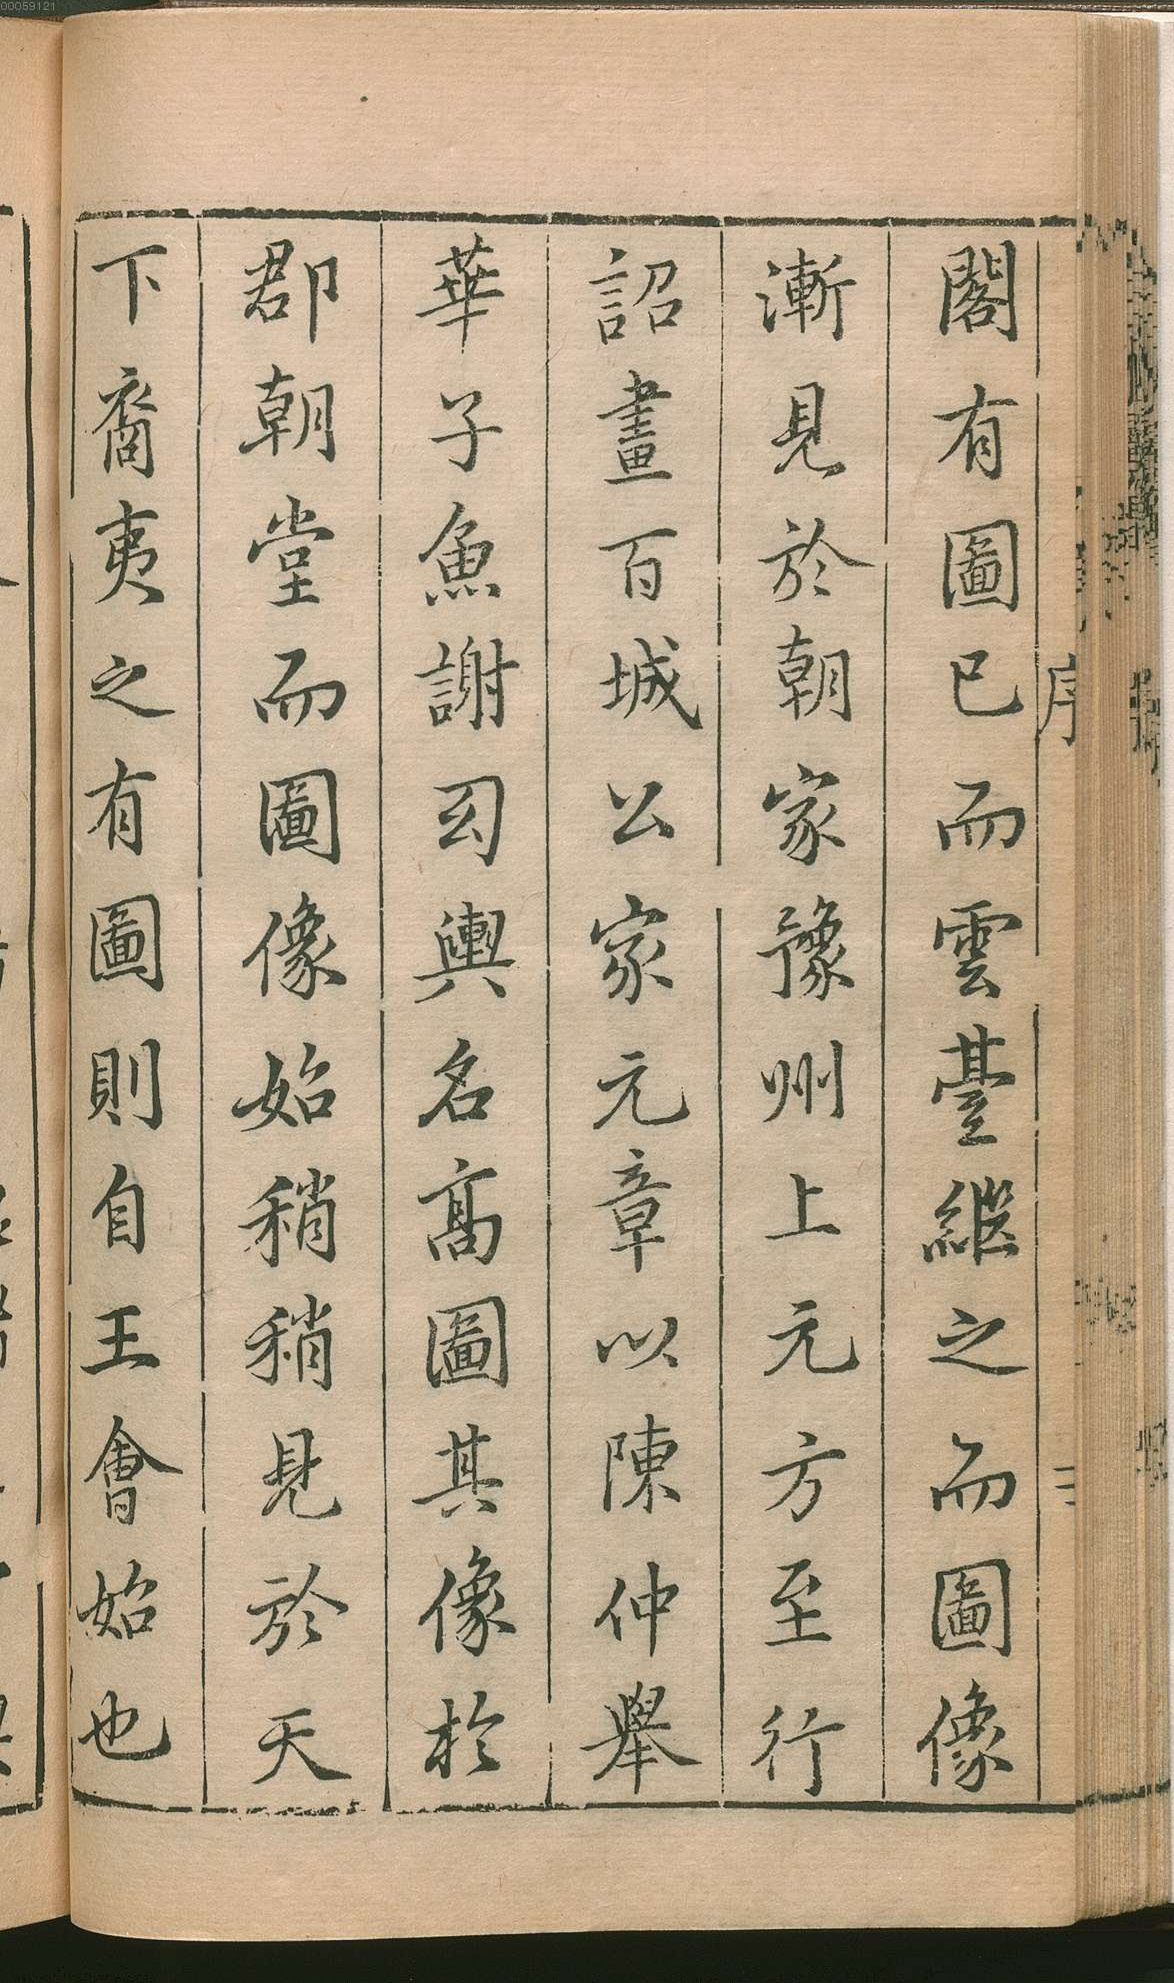 閣有圖已而雲臺繼之而圖像
漸見於朝家豫州上元方至行
詔畫百城公家元章以陳仲舉
華子魚謝㓜輿名高圖其像於
郡朝堂而圖像始稍稍見於天
下裔夷之有圖則自王會始也
序
00059121